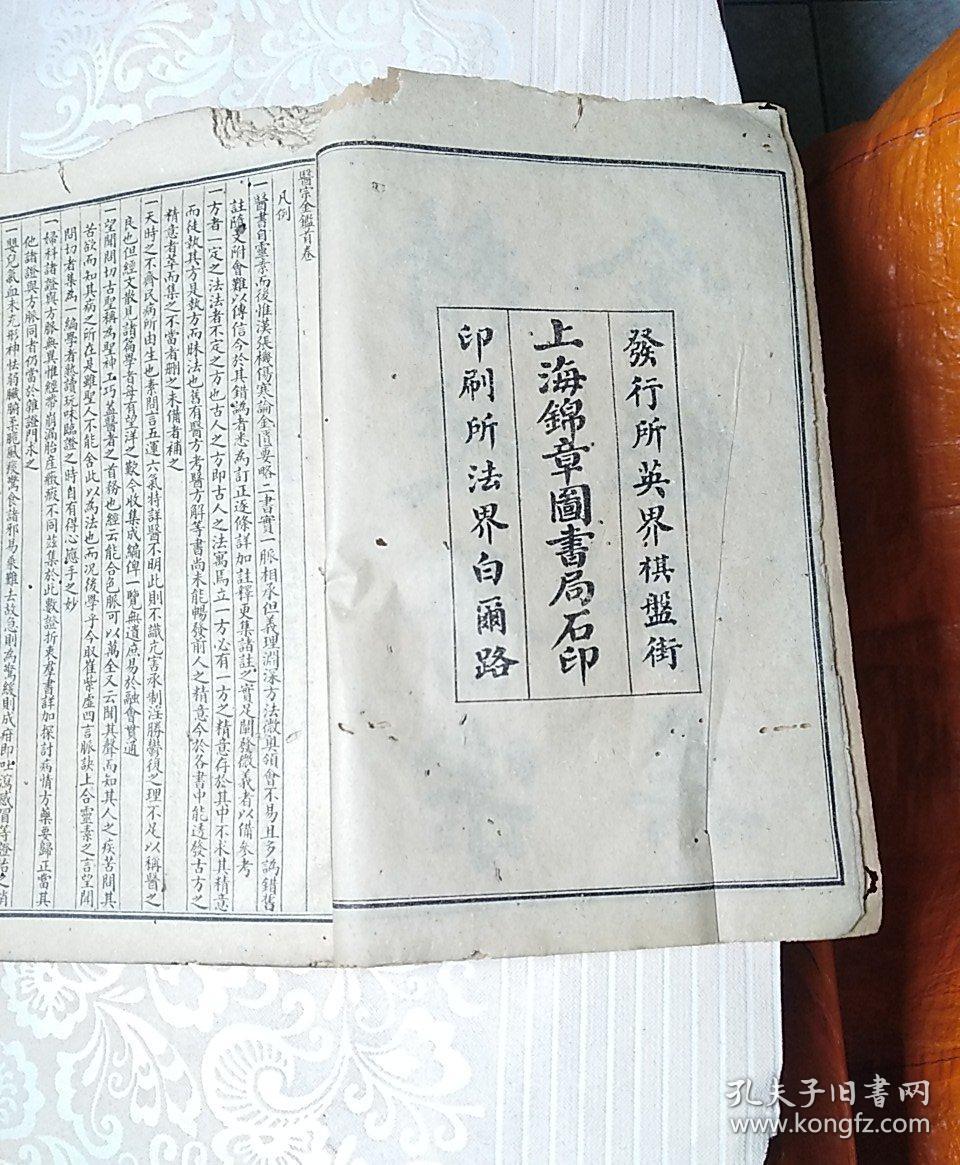 發行所英界棋盤街
上海錦章圖書局石印
印刷所法界白爾路
醫宗金鑑首卷
凡例
一醫書自靈素而後惟漢張機傷寒論金匱要略二書實一脈相承但義理淵深方法微奧領會不易且多譌錯舊
註隨文附會難以傳信今於其錯譌者悉為訂正逐條詳加註釋更集諸註之實足闡發微義者以備參考
一方者一定之法法者不定之方也古人之方即古人之法寓焉立一方必有一方之精意存於其中不求其精意
而徒執其方是執方而昧法也舊有醫方考醫方解等書尚未能暢發前人之精意今於各書中能透發古方之
精意者萃而集之不當者刪之未備者補之
一天時之不齊民病所由生也素問言五運六氣特詳醫不明此則不識亢害承制淫勝鬱復之理不足以稱醫之
良也但經文散見諸篇學者每有望洋之歎今收集成編俾一覽無遺庶易於融會貫通
一望聞問切古聖稱為聖神工巧益醫者之首務也經云能合色脈可以萬全又云聞其聲而知其人之疾苦問其
苦欲而知其病之所在是雖聖人不能舍此以為法也而況後學乎今取崔紫虛四言脈訣上合靈素之言望聞
問切者集為一編學者熟讀玩味臨證之時自有得心應手之妙
一婦科諸證與方脈無異惟經帶崩漏胎產癥瘕不同茲集於此數證折衷羣書詳加探討病情方藥要歸正當其
他諸證與方脈同者仍當於雜證門求之
一嬰兒氣血未充形神怯弱臟腑柔脆風痰驚食諸邪易乘難去故急則為驚緩則成疳即吐瀉感冒等證治之稍
孔夫子旧书网
www.kongfz.com